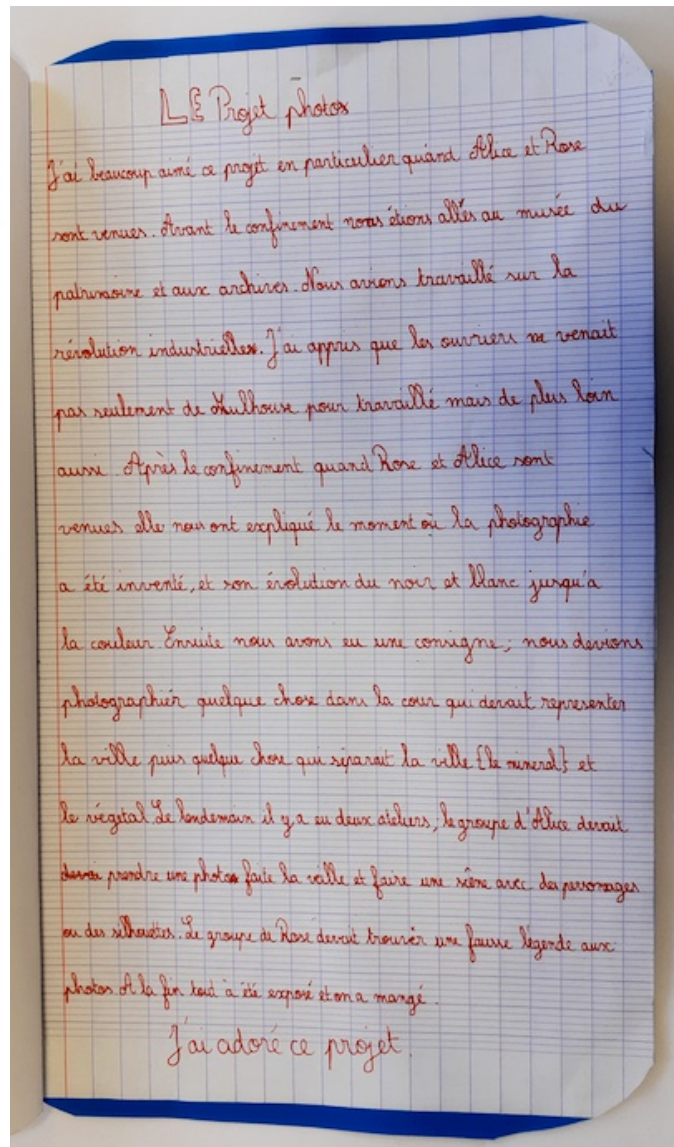 LE Projet photos
J'ai beaucoup aimé ce projet en particulier quând Alice et Rose
sont venues. Avant le confinement nous étions allés au musée du
patrimoine et aux archives. Nous avions travaillé sur la
révolution industrielle. J'ai appris que les ouvriers ne venait
pas seulement de Mulhouse pour travaillé mais de plus loin
aussi. Après le confinement quand Rose et Alice sont
venues elle nous ont expliqué le moment où la photographie
a été inventé, et son évolution du noir et blanc jusqu'a
la couleur. Ensuite nous avons eu une consigne, nous devions
photographiér quelque chose dans la cour qui devait representer
la ville puis quelque chose qui séparait la ville {le mineral} et
le végétal. Le lendemain il y a eu deux ateliers, le groupe d'Alice devait
prendre une photo faite la veille et faire une scène avec des personages
ou des silhouettes. Le groupe de Rose devait trouvér une fausse légende aux
photos. A la fin tout à été exposé et on a mangé.
J'ai adoré ce projet.